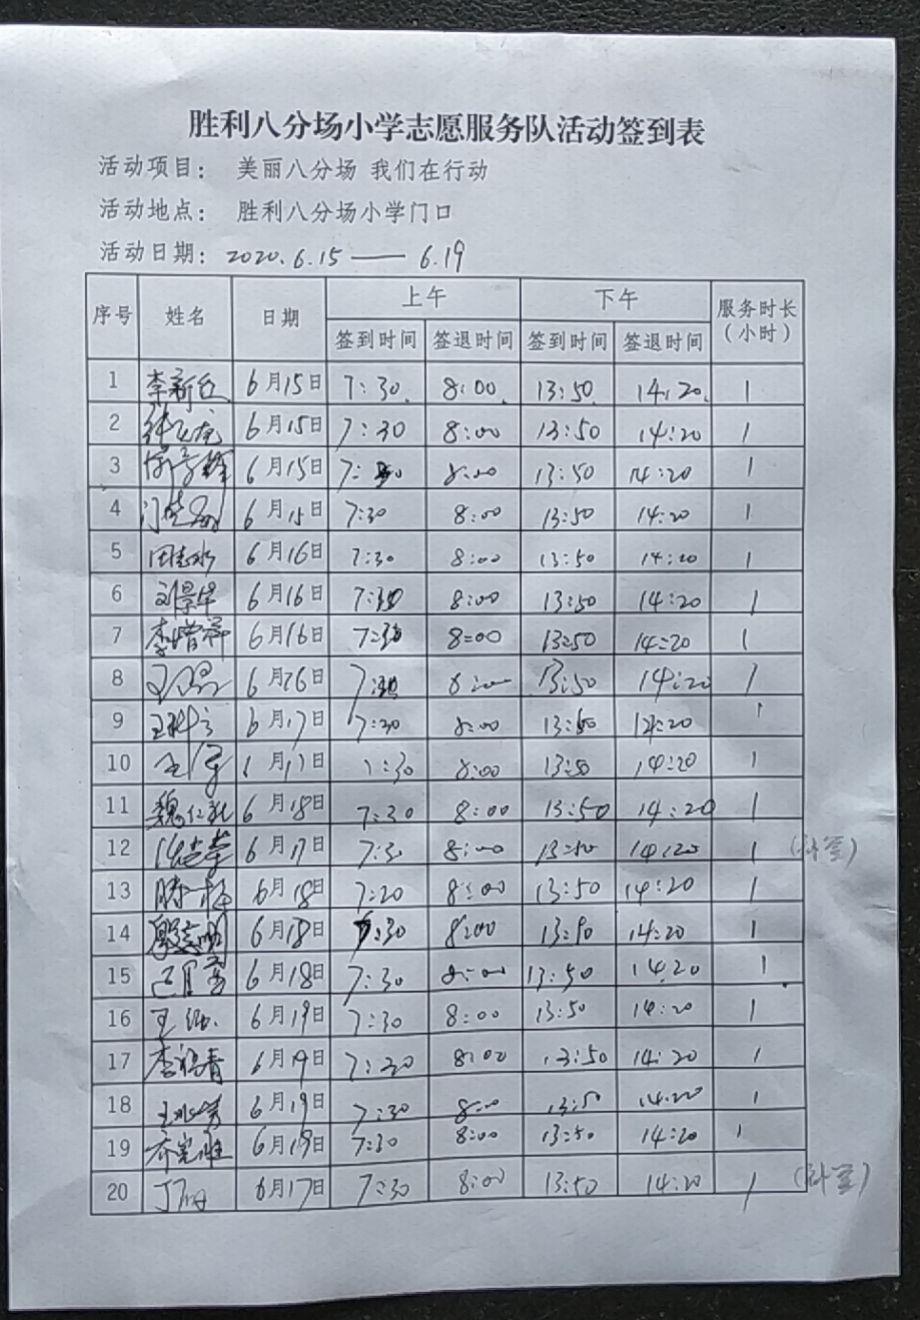 胜利八分场小学志愿服务队活动签到表
活动项目： 美丽八分场 我们在行动
活动地点： 胜利八分场小学门口
活动日期：2020.6.15——6.19
序号 姓名 日期 上午 下午 服务时长（小时）
签到时间 签退时间 签到时间 签退时间
1 李新 6月15日 7:30 8:00 13:50 14:20 1
2 6月15日 7:30 8:00 13:50 14:20 1
3 6月15日 7:30 8:00 13:50 14:20 1
4 6月15日 7:30 8:00 13:50 14:20 1
5 田志水 6月16日 7:30 8:00 13:50 14:20 1
6 刘景华 6月16日 7:30 8:00 13:50 14:20 1
7 李增 6月16日 7:30 8:00 13:50 14:20 1
8 6月26日 7:30 8:00 13:50 14:20 1
9 王 6月17日 7:30 8:00 13:50 14:20 1
10 月17日 7:30 8:00 13:50 14:20 1
11 魏仁礼 6月18日 7:30 8:00 13:50 14:20 1
12 6月17日 7:30 8:00 13:50 14:20 1 （补签）
13 6月18日 7:20 8:00 13:50 14:20 1
14 志明 6月18日 7:30 8:00 13:50 14:20 1
15 6月18日 7:30 8:00 13:50 14:20 1
16 王 6月19日 7:30 8:00 13:50 14:20 1
17 李 青 6月19日 7:30 8:00 13:50 14:20 1
18 王 6月19日 7:30 8:00 13:50 14:20 1
19 乔 6月19日 7:30 8:00 13:50 14:20 1
20 丁 6月17日 7:30 8:00 13:50 14:20 1 （补签）